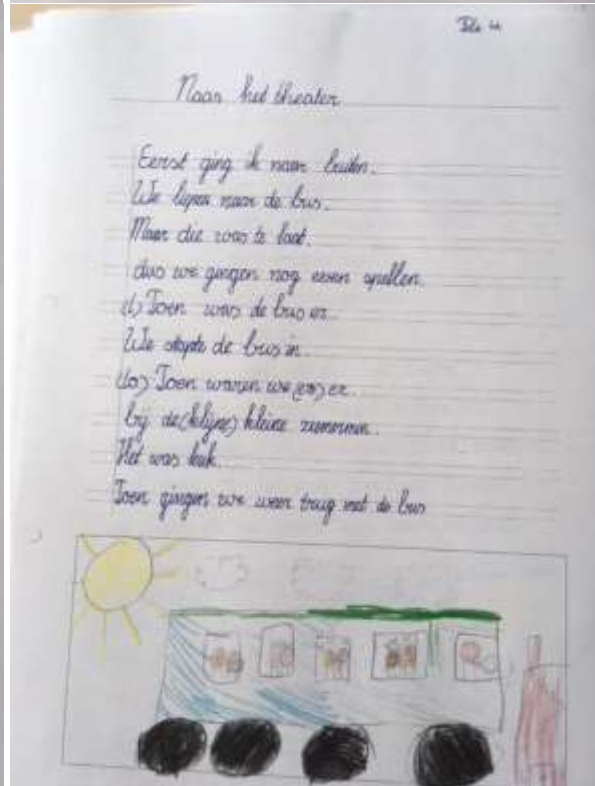 Naar het theater
Eerst ging ik naar buiten.
We lipen naar de bus.
Maar die was te laat.
dus we gingen nog even spellen.
(l) Toen was de bus er.
We stapte de bus in.
(to) Toen waren we (er) er.
bij de (klijne) kleine
Het was leuk.
Toen gingen we weer trug met de bus